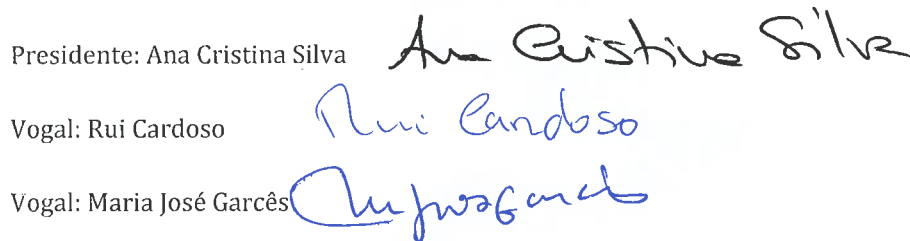 Presidente: Ana Cristina Silva Ana Cristina Silva
Vogal: Rui Cardoso Rui Cardoso
Vogal: Maria José Garcês